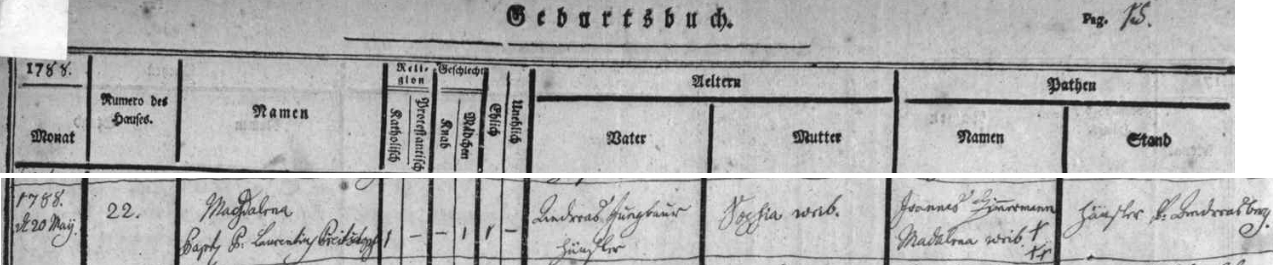 Geburtsbuch.
Pag. 15.
1788.
Monat
Numero des Hauses.
Namen
Reli-
gion
Katholisch
Protestantisch
Geschlecht
Knab
Mädchen
Ehlich
Unehlich
Aeltern
Vater
Mutter
Pathen
Namen
Stand
1788.
dt 20 Maÿ.
22.
Magdalena
Bapt: P. Laurentius
1 – – 1 1 –
Andreas Jungbaur
Häusler
Sophia weib.
Joannes Zimmermann
Madalena weib ++
Häusler v. Andreasberg.